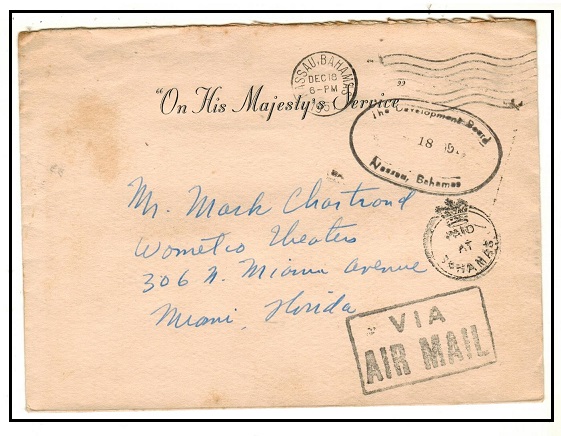 NASSAU, BAHAMAS
DEC 18
6-PM
"On His Majesty's Service"
The Development Board
18
Nassau, Bahamas
Mr. Mark Chartrand
Wometco Theaters
306 N. Miami Avenue
Miami, Florida
PAID
AT
BAHAMAS
VIA
AIR MAIL